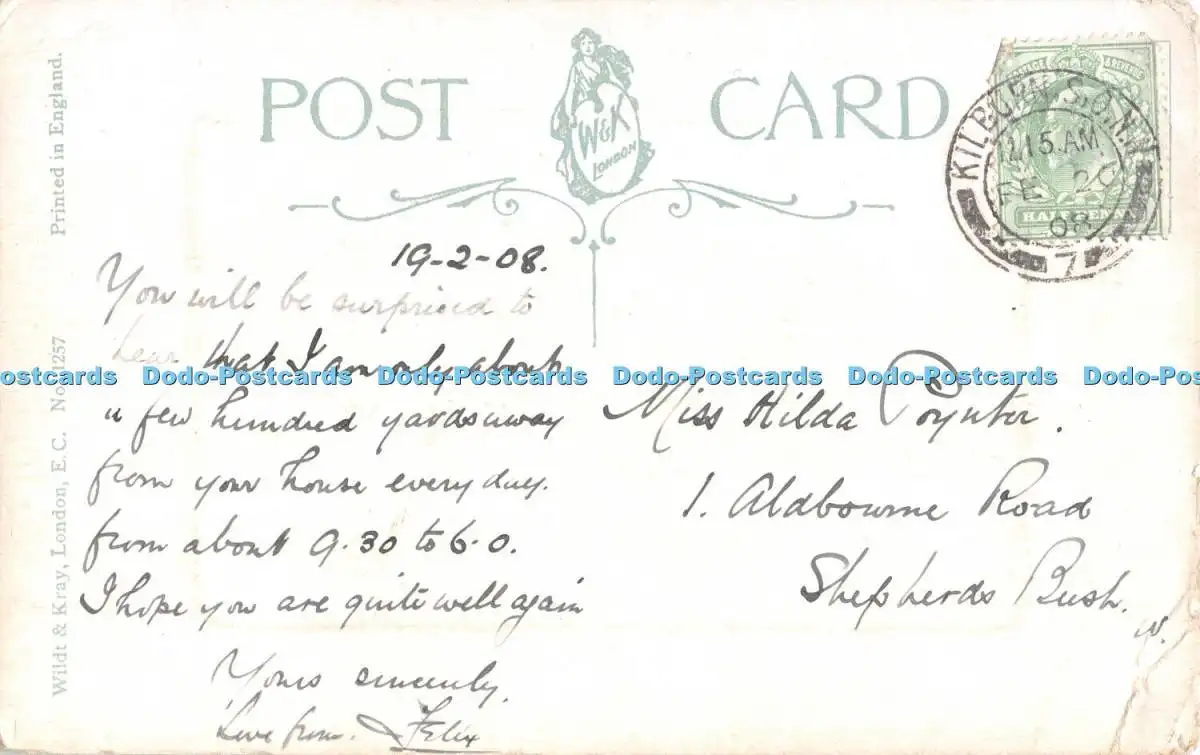 POST CARD
W&K
LONDON
Printed in England.
Wildt & Kray, London, E.C. No. 1257
KILBURN S.O.N.W
12.15.AM
FE 20
08
7
POSTAGE & REVENUE
19-2-08.
You will be surprised to
hear that I am only about
a few hundred yards away
from your house every day.
from about 9.30 to 6.0.
I hope you are quite well again
Yours sincerely,
Love from. Felix
Miss Hilda Poynter.
1. Aldbourne Road
Shepherds Bush.
W.
Dodo-Postcards Dodo-Postcards Dodo-Postcards Dodo-Postcards Dodo-Postcards